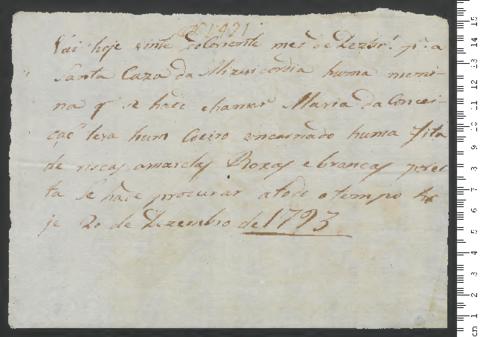 Vai hoje vinte do corente mes de Dezbr.º p.ª a
Santa Caza da Mizericordia huma meni-
na q̃ se hade chamar Maria da Concei-
çaõ leva hum Coeiro encarnado huma fita
de riscas amarelas Roxas e brancas por es-
ta se hade procurar a todo o tempo ho-
je 20 de Dezembro de 1793